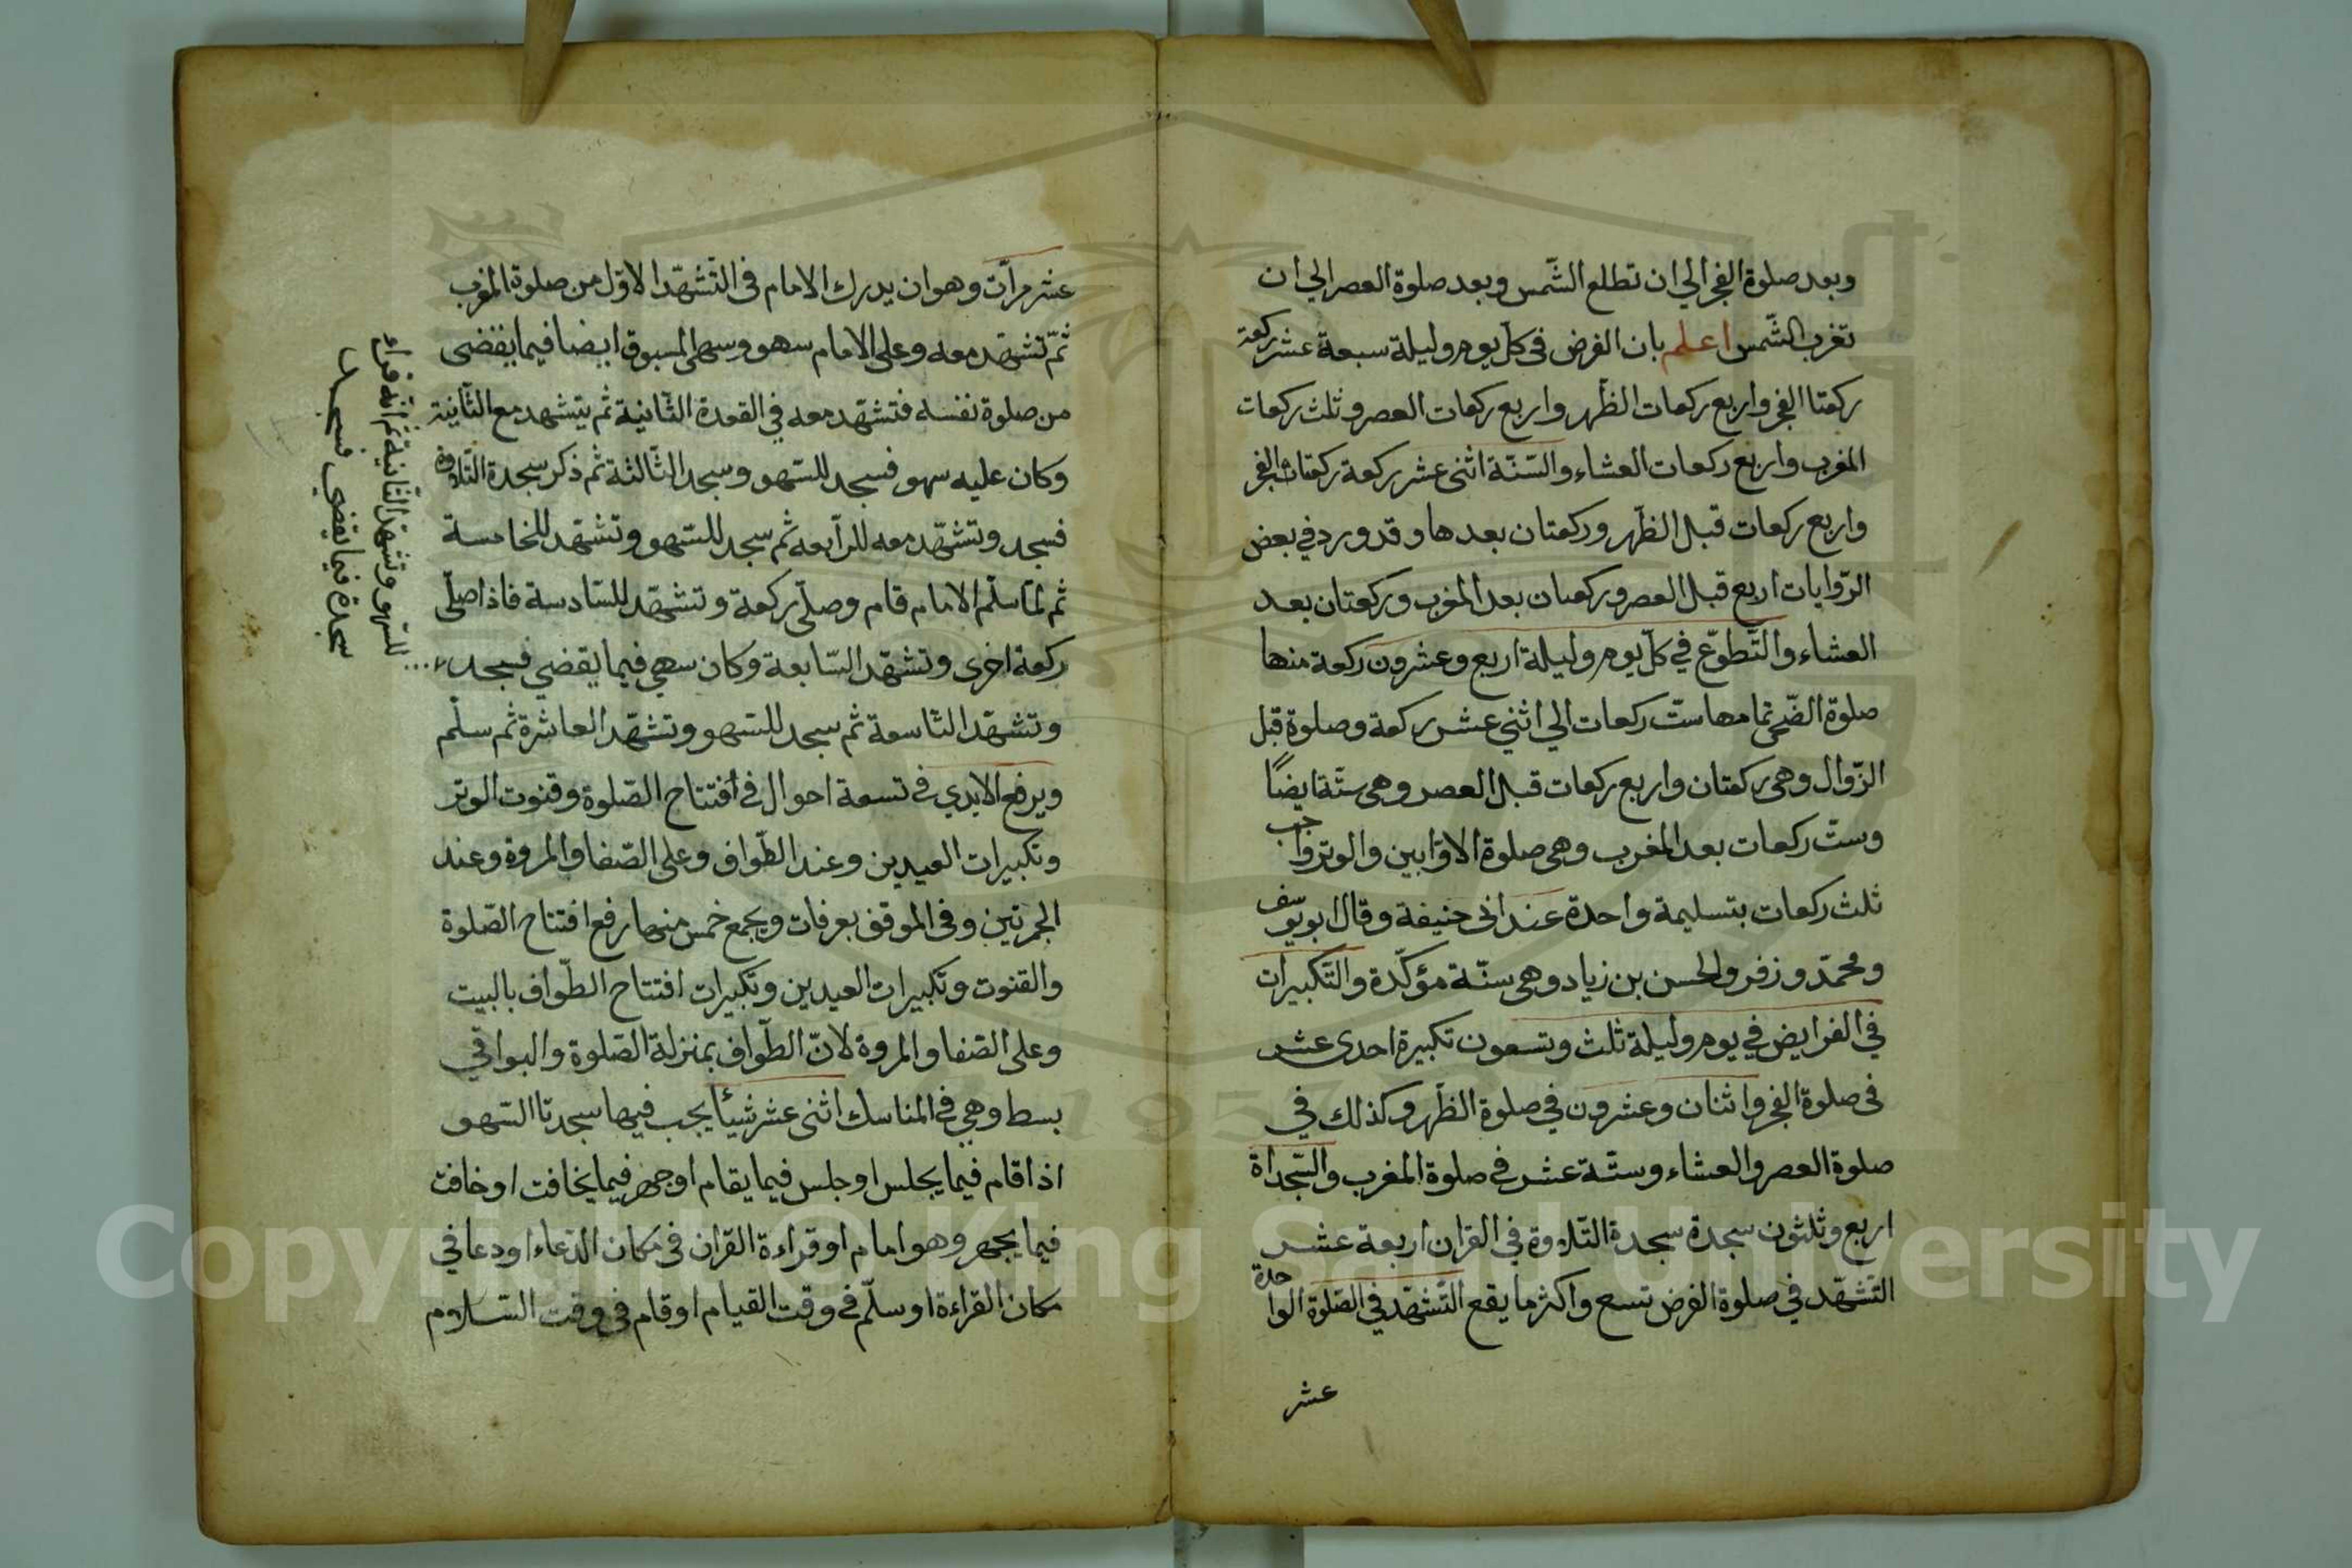 وبعد صلوة الفجر الي ان تطلع الشّمس وبعد صلوة العصر الي ان
تغرب الشّمس اعلم بان الفرض فى كلّ يوم وليلة سبعة عشر ركعة
ركعتا الفجر واربع ركعات الظّهر واربع ركعات العصر وثلث ركعات
المغرب واربع ركعات العشاء والسّنّة اثنى عشر ركعة ركعتان الفجر
واربع ركعات قبل الظّهر وركعتان بعدها وقد ورد في بعض
الرّوايات اربع قبل العصر وركعتان بعد المغرب وركعتان بعد
العشاء والتّطوّع في كلّ يوم وليلة اربع وعشرون ركعة منها
صلوة الضّحى تمامها ستّ ركعات الي اثني عشر ركعة وصلوة قبل
الزّوال وهى ركعتان واربع ركعات قبل العصر وهى سنّة ايضاً
وستّ ركعات بعد المغرب وهى صلوة الاوّابين والوتر واجب
ثلث ركعات بتسليمة واحدة عند ابى حنيفة وقال ابو يوسف
ومحمّد وزفر والحسن بن زياد وهى سنّة مؤكّدة والتّكبيرات
في الفرايض في يوم وليلة ثلث وتسعون تكبيرة احدى عشر
فى صلوة الفجر واثنان وعشرون في صلوة الظّهر وكذلك في
صلوة العصر والعشاء وستّة عشر في صلوة المغرب والسّجداة
اربع وثلثون سجدة سجدة التّلاوة في القران اربعة عشر
التّشهّد في صلوة الفرض تسع واكثر ما يقع التّشهّد في الصّلوة الواحدة
عشر
عشر مرّات وهو ان يدرك الامام فى التّشهّد الاوّل من صلوة المغرب
ثمّ تشهّد معه وعلى الامام سهو وسهى المسبوق ايضا فيما يقضى
من صلوة نفسه فتشهّد معه في القعدة الثّانية ثم يتشهد مع الثّانية
وكان عليه سهو فسجد للسّهو وسجد الثّالثة ثم ذكر سجدة التّلاوة
فسجد وتشهّد معه للرّابعه ثم سجد للسّهو وتشهّد للخامسة
ثم لمّا سلّم الامام قام وصلّى ركعة وتشهّد للسّادسة فاذا صلّى
ركعة اخرى وتشهّد السّابعة وكان سهى فيما يقضي فسجد
وتشهّد التّاسعة ثم سجد للسّهو وتشهّد العاشرة ثم سلّم
ويرفع الايدي في تسعة احوال في أفتتاح الصّلوة وقنوت الوتر
وتكبيرات العيدين وعند الطّواف وعلى الصّفا والمروة وعند
الجمرتين وفى الموقف بعرفات ويجمع خمس منها رفع افتتاح الصّلوة
والقنوت وتكبيرات العيدين وتكبيرات افتتاح الطّواف بالبيت
وعلى الصّفا والمروة لانّ الطّواف بمنزلة الصّلوة والبواقي
بسط وهي في المناسك اثنى عشر شيئاً يجب فيها سجدتا السّهو
اذا قام فيما يجلس او جلس فيما يقام او جهر فيما يخافت او خافت
فيما يجهر وهو امام او قراءة القران فى مكان الدّعاء او دعا في
مكان القراءة او سلّم في وقت القيام او قام فى وقت السّلام
للسّهو وتشهّد الثّانية ثم انه قراء
سجدة فيما يقضي فسجدها
Copyright © King Saud University
1957